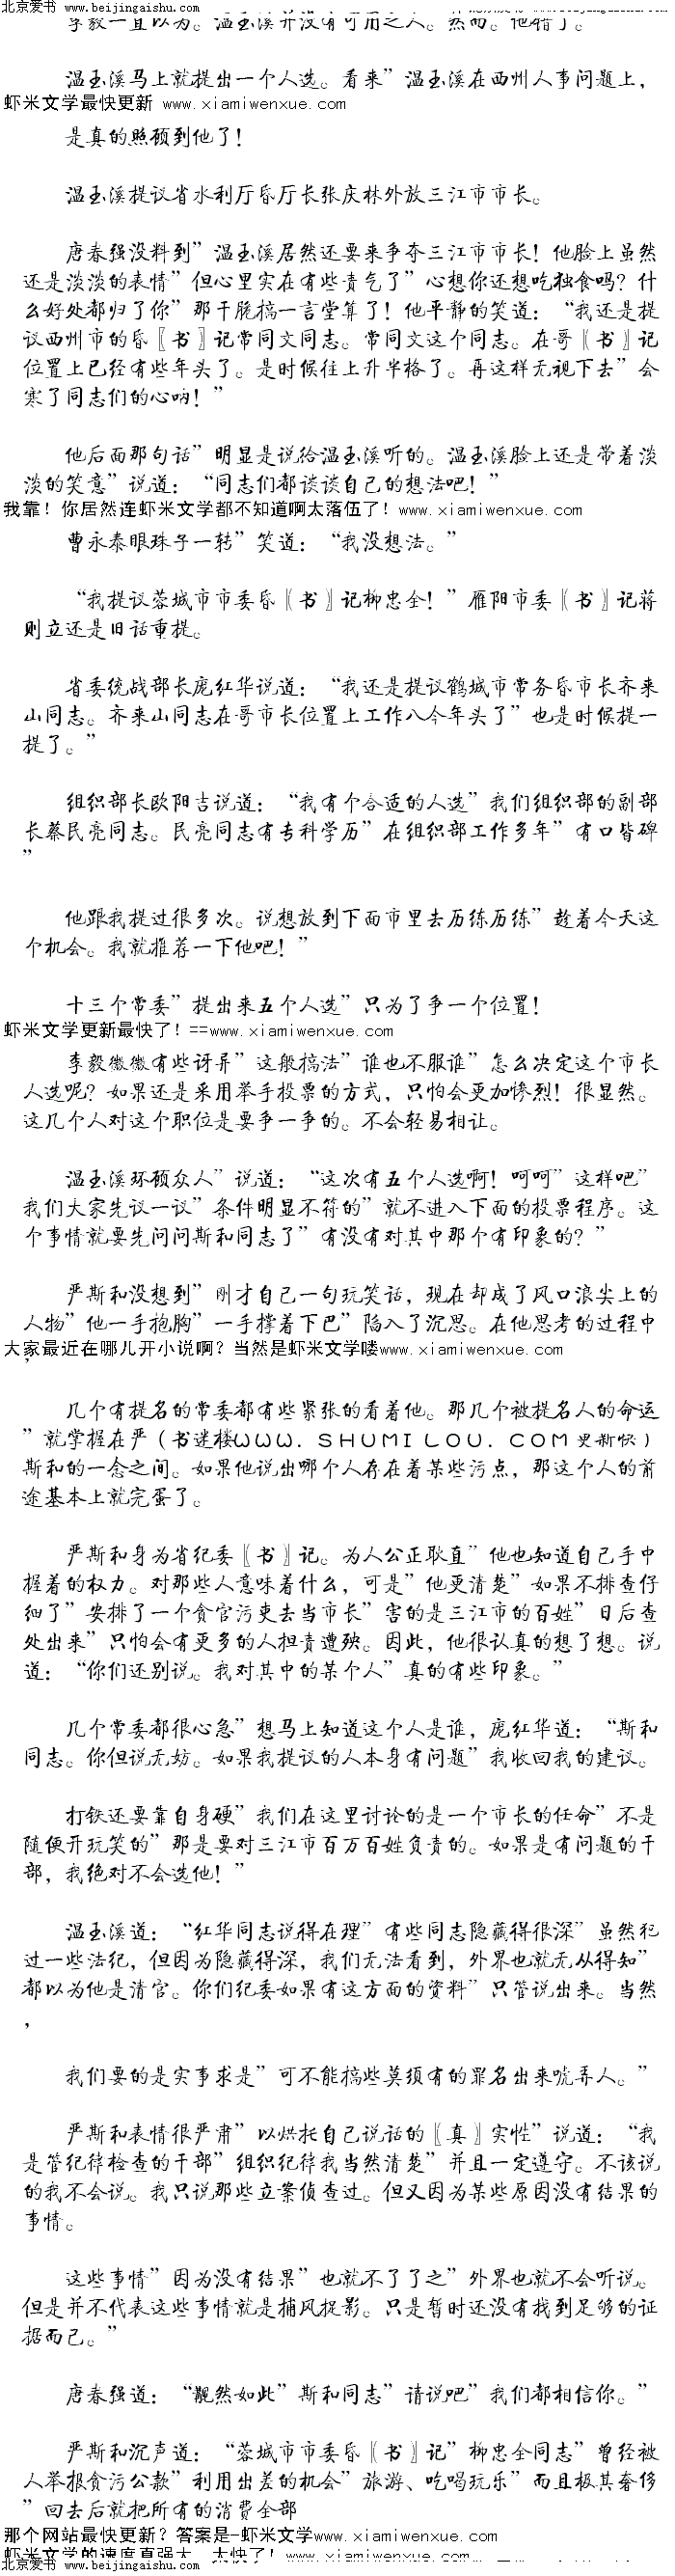 北京爱书 www.beijingaishu.com
李毅一直以为。温玉溪并没有可用之人。然而。他错了。
温玉溪马上就提出一个人选。看来”温玉溪在西州人事问题上，
虾米文学最快更新 www.xiamiwenxue.com
是真的照顾到他了！
温玉溪提议省水利厅昏厅长张庆林外放三江市市长。
唐春强没料到”温玉溪居然还要来争夺三江市市长！他脸上虽然
还是淡淡的表情”但心里实在有些责气了”心想你还想吃独食吗？什
么好处都归了你”那干脆搞一言堂算了！他平静的笑道：“我还是提
议西州市的昏〖书〗记常同文同志。常同文这个同志。在哥〖书〗记
位置上已经有些年头了。是时候往上升半格了。再这样无视下去”会
寒了同志们的心呐！”
他后面那句话”明显是说给温玉溪听的。温玉溪脸上还是带着淡
淡的笑意”说道：“同志们都谈谈自己的想法吧！”
我靠！你居然连虾米文学都不知道啊太落伍了！www.xiamiwenxue.com
曹永泰眼珠子一转”笑道：“我没想法。”
“我提议蓉城市市委昏〖书〗记柳忠全！”雁阳市委〖书〗记蒋
则立还是旧话重提。
省委统战部长庞红华说道：“我还是提议鹤城市常务昏市长齐来
山同志。齐来山同志在哥市长位置上工作八今年头了”也是时候提一
提了。”
组织部长欧阳吉说道：“我有个合适的人选”我们组织部的副部
长蔡民亮同志。民亮同志有专科学历”在组织部工作多年”有口皆碑
”
他跟我提过很多次。说想放到下面市里去历练历练”趁着今天这
个机会。我就推荐一下他吧！”
十三个常委”提出来五个人选”只为了争一个位置！
虾米文学更新最快了！==www.xiamiwenxue.com
李毅微微有些讶异”这般搞法”谁也不服谁”怎么决定这个市长
人选呢？如果还是采用举手投票的方式，只怕会更加惨烈！很显然。
这几个人对这个职位是要争一争的。不会轻易相让。
温玉溪环顾众人”说道：“这次有五个人选啊！呵呵”这样吧”
我们大家先议一议”条件明显不符的”就不进入下面的投票程序。这
个事情就要先问问斯和同志了”有没有对其中那个有印象的？”
严斯和没想到”刚才自己一句玩笑话，现在却成了风口浪尖上的
人物”他一手抱胸”一手撑着下巴”陷入了沉思。在他思考的过程中
大家最近在哪儿开小说啊？当然是虾米文学喽www.xiamiwenxue.com
，
几个有提名的常委都有些紧张的看着他。那几个被提名人的命运
”就掌握在严（书迷楼ＷＷＷ．ＳＨＵＭＩＬＯＵ．ＣＯＭ更新快）
斯和的一念之间。如果他说出哪个人存在着某些污点，那这个人的前
途基本上就完蛋了。
严斯和身为省纪委〖书〗记。为人公正耿直”他也知道自己手中
握着的权力。对那些人意味着什么，可是”他更清楚”如果不排查仔
细了”安排了一个贪官污吏去当市长”害的是三江市的百姓”日后查
处出来”只怕会有更多的人担责遭殃。因此，他很认真的想了想。说
道：“你们还别说。我对其中的某个人”真的有些印象。”
几个常委都很心急”想马上知道这个人是谁，庞红华道：“斯和
同志。你但说无妨。如果我提议的人本身有问题”我收回我的建议。
打铁还要靠自身硬”我们在这里讨论的是一个市长的任命”不是
随便开玩笑的”那是要对三江市百万百姓负责的。如果是有问题的干
部，我绝对不会选他！”
温玉溪道：“红华同志说得在理”有些同志隐藏得很深”虽然犯
过一些法纪，但因为隐藏得深，我们无法看到，外界也就无从得知”
都以为他是清官。你们纪委如果有这方面的资料”只管说出来。当然
，
我们要的是实事求是”可不能搞些莫须有的罪名出来唬弄人。”
严斯和表情很严肃”以烘托自己说话的〖真〗实性”说道：“我
是管纪律检查的干部”组织纪律我当然清楚”并且一定遵守。不该说
的我不会说。我只说那些立案侦查过。但又因为某些原因没有结果的
事情。
这些事情”因为没有结果”也就不了了之”外界也就不会听说。
但是并不代表这些事情就是捕风捉影。只是暂时还没有找到足够的证
据而已。”
唐春强道：“靓然如此”斯和同志”请说吧”我们都相信你。”
严斯和沉声道：“蓉城市市委昏〖书〗记”柳忠全同志”曾经被
人举报贪污公款”利用出差的机会”旅游、吃喝玩乐”而且极其奢侈
”回去后就把所有的消费全部
那个网站最快更新？答案是-虾米文学www.xiamiwenxue.com
虾米文学的速度真强大、太快了！www.xiamiwenxue.com
北京爱书 www.beijingaishu.com